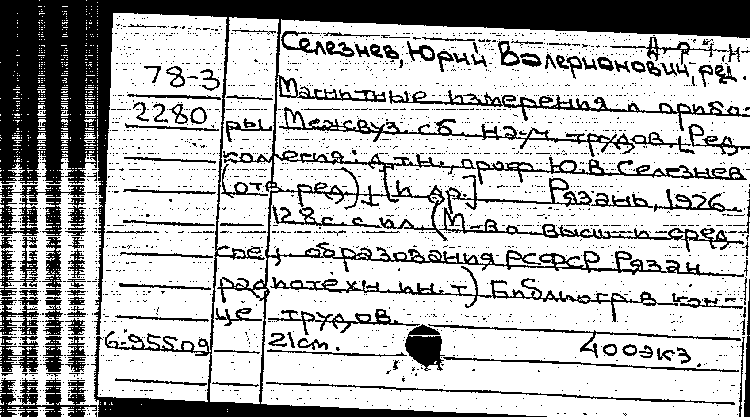 Селезнев, Юрий Валерианович, ред.
78-3
Магнитные измерения и прибо-
2280
ры. Межвуз. сб. науч. трудов. [Ред.
коллегия: д.т.н., проф. Ю.В. Селезнев
(отв. ред.) [и др.] Рязань, 1976.
128с. с ил. (М-во высш. и сред.
спец. образования РСФСР. Рязан.
радиотехн. ин.т) Библиогр. в кон-
це трудов.
6-95509 21 cm. 400экз.